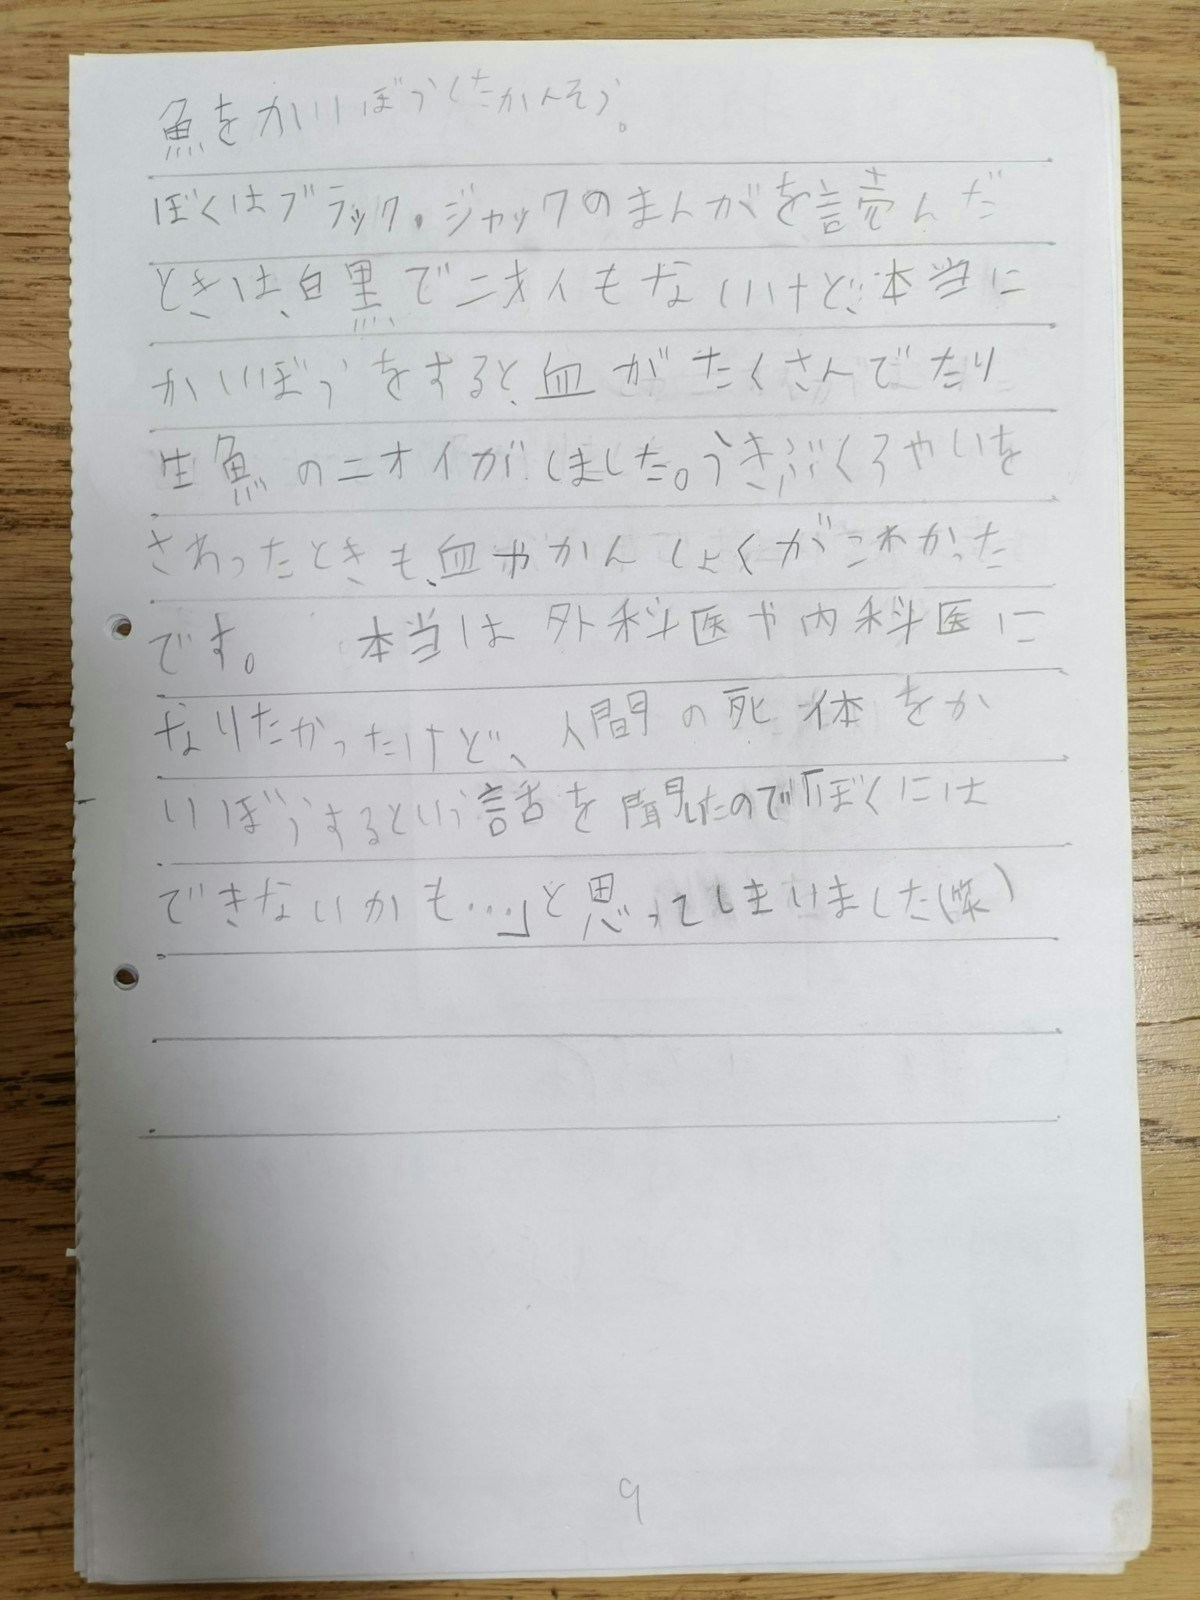 魚をかいぼうくたかんそう。
ぼくはブラック・ジャックのまんがを読んだ
ときは、白黒でニオイもないけど、本当に
かいぼうをすると、血がたくさんでたり
生魚のニオイがしました。うきぶくろやいを
さわったときも、血やかんしょくがこわかった
です。 本当は外科医や内科医に
なりたかったけど、人間の死体をか
いぼうするという話を聞見たので「ぼくには
できないかも…」と思ってしまいました(笑)
9